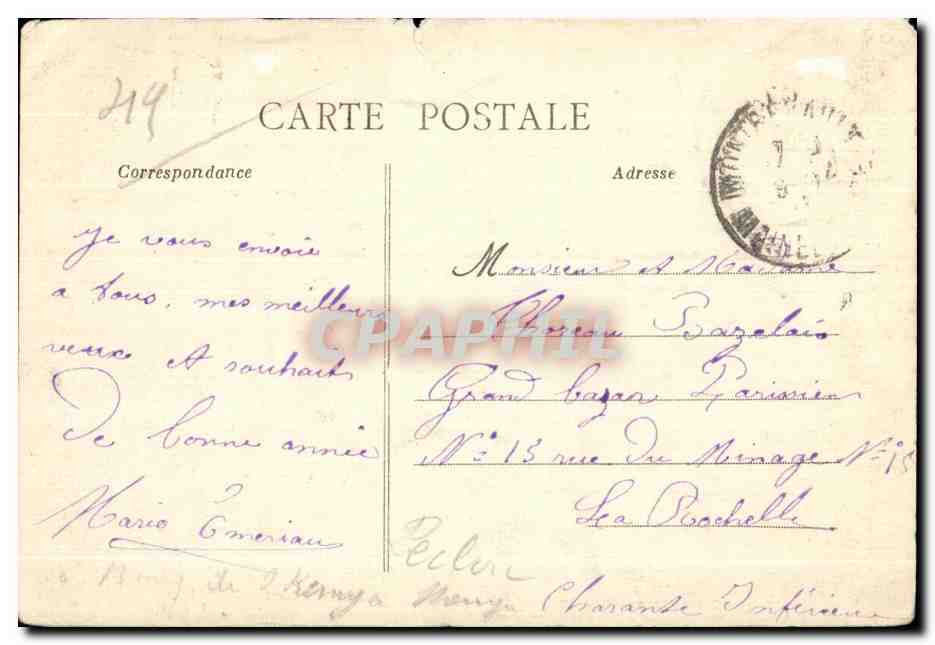 419
CARTE POSTALE
Correspondance
Adresse
Je vous envoie
a tous, mes meilleurs
veux et souhaits
de bonne année
Mario Emeriau
Monsieur et Madame
Choreau Bazelais
Grand bazar Parisien
N° 13 rue du Minage N° 13
La Rochelle
Charante Inférieure
CPAPHIL